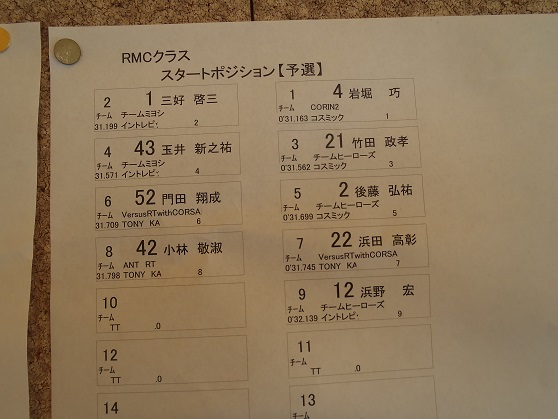 RMCクラス
スタートポジション【予選】
2 1 三好 啓三
チーム チームミヨシ
31.199 イントレピ: 2
1 4 岩堀 巧
チーム CORIN2
0'31.163 コスミック 1
4 43 玉井 新之祐
チーム チームミヨシ
31.571 イントレピ: 4
3 21 竹田 政孝
チーム チームヒーローズ
0'31.562 コスミック 3
6 52 門田 翔成
チーム VersusRTwithCORSA
31.709 TONY KA 6
5 2 後藤 弘祐
チーム チームヒーローズ
0'31.699 コスミック 5
8 42 小林 敬淑
チーム ANT RT
31.798 TONY KA 8
7 22 浜田 高彰
チーム VersusRTwithCORSA
0'31.745 TONY KA 7
10
チーム
TT .0
9 12 浜野 宏
チーム チームヒーローズ
0'32.139 イントレピ: 9
12
チーム
TT .0
11
チーム
TT .0
14
13
チーム